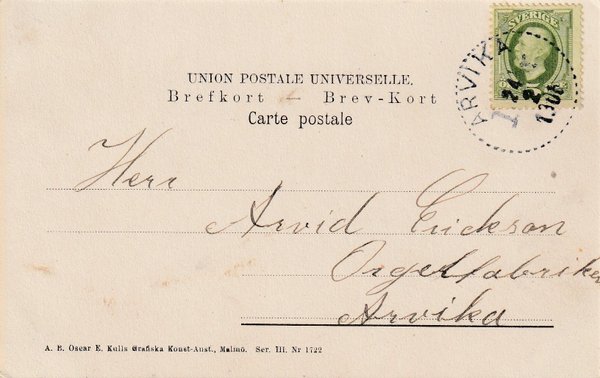 SVERIGE
ARVIKA
24
2
1 3 06
UNION POSTALE UNIVERSELLE.
Brefkort — Brev-Kort
Carte postale
Herr
Arvid Erickson
Orgelfabriken
Arvika
A. B. Oscar E. Kulls Grafiska Konst-Anst., Malmö. Ser. III. Nr 1722